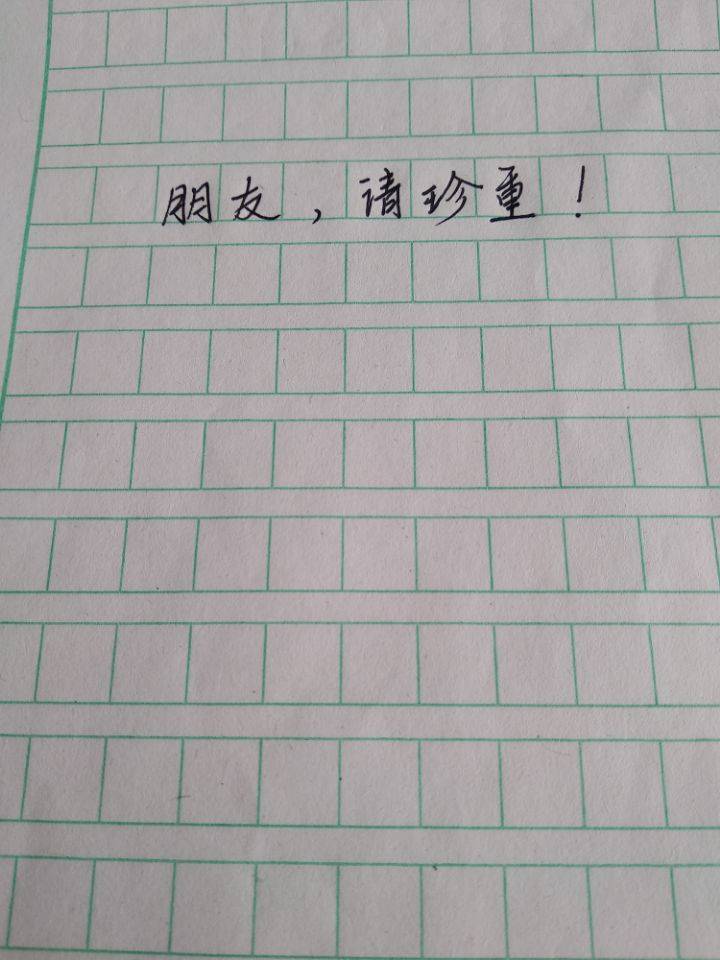 朋友，请珍重！